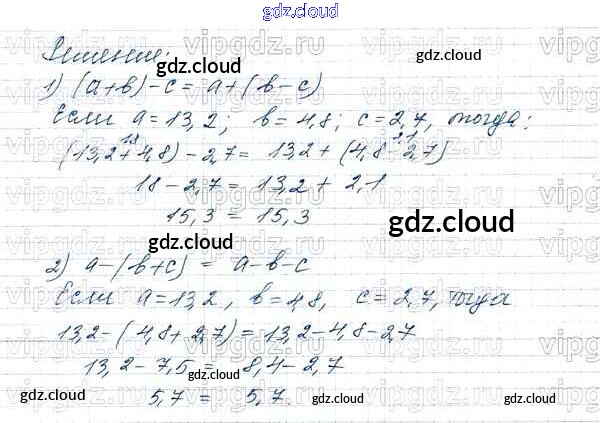 gdz.cloud
Решение:
1) (a+в)-c = a+(в-c)
Если a=13,2; в=4,8; c=2,7, тогда:
18 2,1
(13,2+4,8)-2,7 = 13,2+(4,8-2,7)
18-2,7 = 13,2+2,1
15,3 = 15,3
2) a-(в+c) = a-в-c
Если a=13,2, в=4,8, c=2,7, тогда
13,2-(4,8+2,7)=13,2-4,8-2,7
13,2-7,5 = 8,4-2,7
5,7 = 5,7.
gdz.cloud
gdz.cloud
gdz.cloud
gdz.cloud
gdz.cloud
gdz.cloud
gdz.cloud
gdz.cloud
gdz.cloud
vipgdz.ru
vipgdz.ru
vipgdz.ru